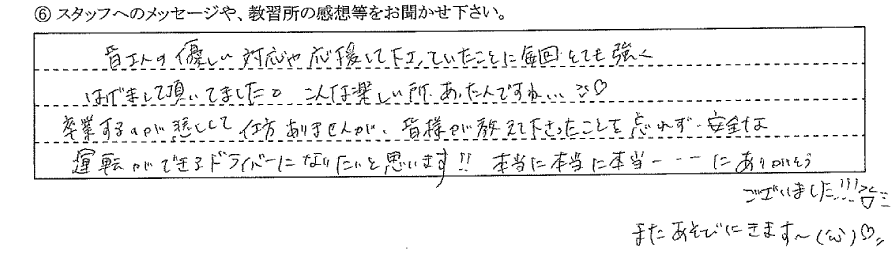 ⑥ スタッフへのメッセージや、教習所の感想等をお聞かせ下さい。
皆さんの優しい対応や応援して下さっていたことに毎回とても強く
はげまして頂いてました。こんな楽しい所あったんですね…♡
卒業するのが悲しくて仕方ありませんが、皆様が教えて下さったことを忘れず、安全な
運転ができるドライバーになりたいと思います!! 本当に本当に本当・・・にありがとう
ございました!!!
またあそびにきます~(･ω･)♡